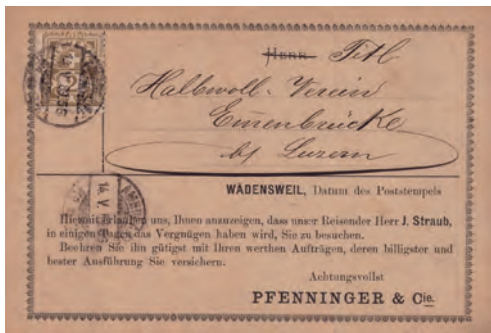 Herr Titl
Halbwoll-Verein
Emenbrücke
by Luzern
2
14. V.
WÄDENSWEIL, Datum des Poststempels
Hiermit erlauben uns, Ihnen anzuzeigen, dass unser Reisender Herr J. Straub,
in einigen Tagen das Vergnügen haben wird, Sie zu besuchen.
Beehren Sie ihn gütigst mit Ihren werthen Aufträgen, deren billigster und
bester Ausführung Sie versichern.
Achtungsvollst
PFENNINGER & Cie.